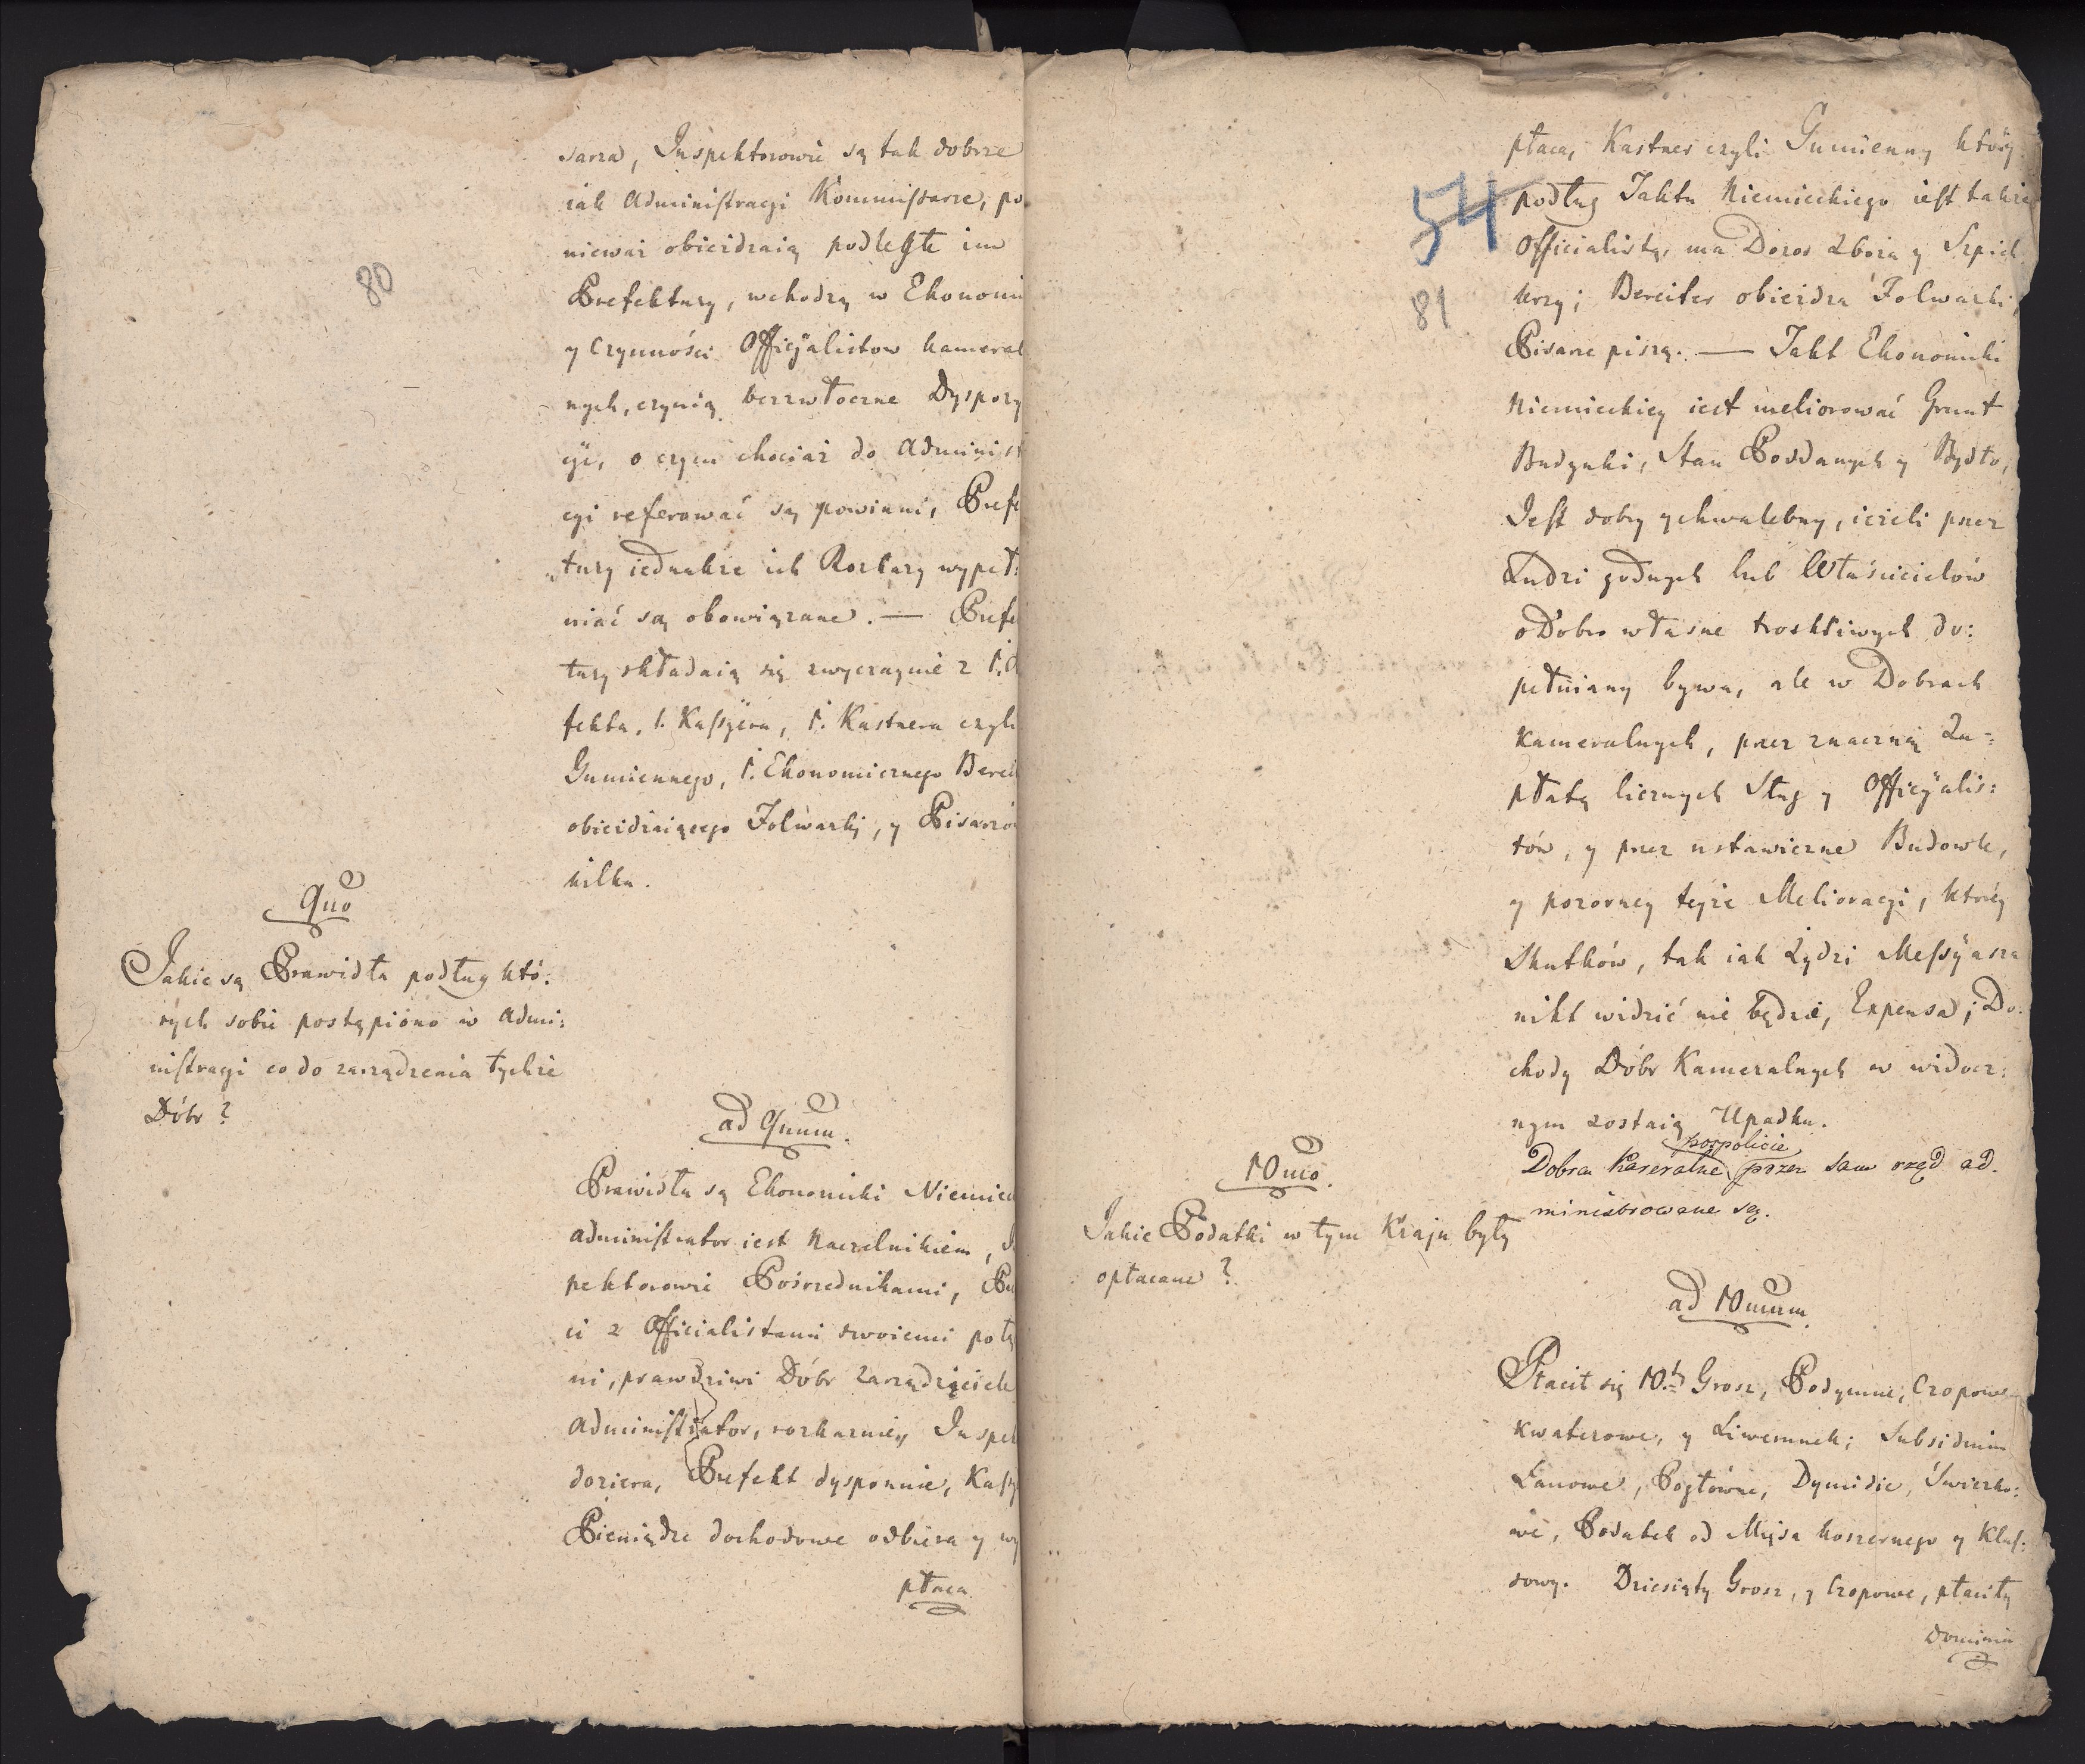 80
sarza, Inspektorowie są tak dobrze
iak Administracyi Kommissarze, po
nieważ obieżdzaią podległe im
Prefektury, wchodzą w Ekonomi
y Czynności Officyalistow kameral
nych, czynią bezzwłoczne Dyspozy
cye, o czym chociaż do Administ
cyi referować są powinni, Prefe
tury iednakże ich Rozkazy wypeł:
niać są obowiązane. — Prefe
tury składaią się zwyczaynie z 1.
fekta, 1. Kassyera, 1. Kastnera czyli
Gumiennego, 1. Ekonomicznego Bereit
obieżdzaiącego Folwarki, y Pisarzów
kilku.
9no
Jakie są Prawidła podług któ:
rych sobie postąpiono w Admi:
nistracyi co do zarządzenia tychże
Dóbr?
ad 9num.
Prawidła są Ekonomiki Niemiec
Administrator iest Naczelnikiem,
pektorowie Pośrzednikami, Pre
ci z Officialistami swoiemi połą
ni, prawdziwi Dóbr Zarządziciele
Administrator, rozkazuie, Inspek
doziera, Prefekt dysponuie, Kassy
Pieniądze dochodowe odbiera y wy
płaca
54
81
płaca, Kastner czyli Gumienny który
podług Taktu Niemieckiego iest także
Officialistą, ma Dozor Zboża y Szpich
lerzy; Bereiter obieżdza Folwarki,
Pisarze piszą. — Takt Ekonomiki
Niemieckiey iest meliorować Grunt
Budynki, Stan Poddanych y Bydło,
Jest dobry y chwalebny, ieżeli przez
Ludzi godnych lub Właścicielów
o Dobro własne troskliwych do:
pełniany bywa, ale w Dobrach
Kameralnych, przez znaczną Za=
płatę licznych Sług y Officyalis:
tów, y przez ustawiczne Budowle,
y pozorney teyże Melioracyi, którey
Skutków, tak iak Żydzi Messyasza
nikt widzić nie będzie, Expensa; Do:
chody Dóbr Kameralnych w widocz:
nym zostaią Upadku.
pospolicie
Dobra Kameralne przez sam rząd ad.
ministrowane są.
10mo.
Jakie Podatki w tym Kraju były
opłacane?
ad 10mum.
Płacił się 10.ty Grosz, Podymne, Czopowe
Kwaterowe, y Liwerunek; Subsidium
Łanowe, Pogłówne, Dymidie, Świeczko:
we, Podatek od Mięsa koszernego y Klas:
sowy. Dziesiąty Grosz, y Czopowe, płaciły
Dominia